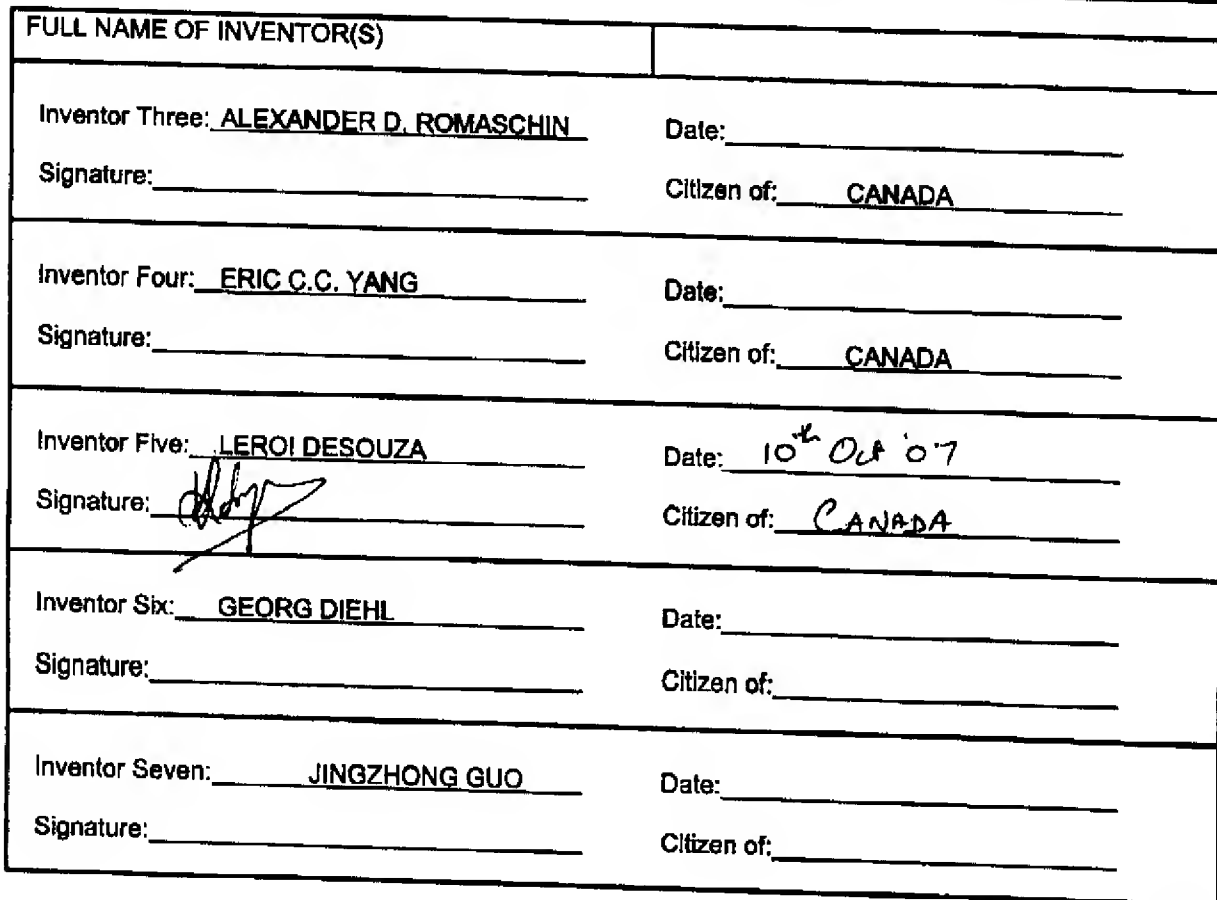 FULL NAME OF INVENTOR(S)
Inventor Three: ALEXANDER D. ROMASCHIN
Date:
Signature:
Citizen of: CANADA
Inventor Four: ERIC C.C. YANG
Date:
Signature:
Citizen of: CANADA
Inventor Five: LEROI DESOUZA
Date: 10th Oct '07
Signature:
Citizen of: CANADA
Inventor Six: GEORG DIEHL
Date:
Signature:
Citizen of:
Inventor Seven: JINGZHONG GUO
Date:
Signature:
Citizen of: